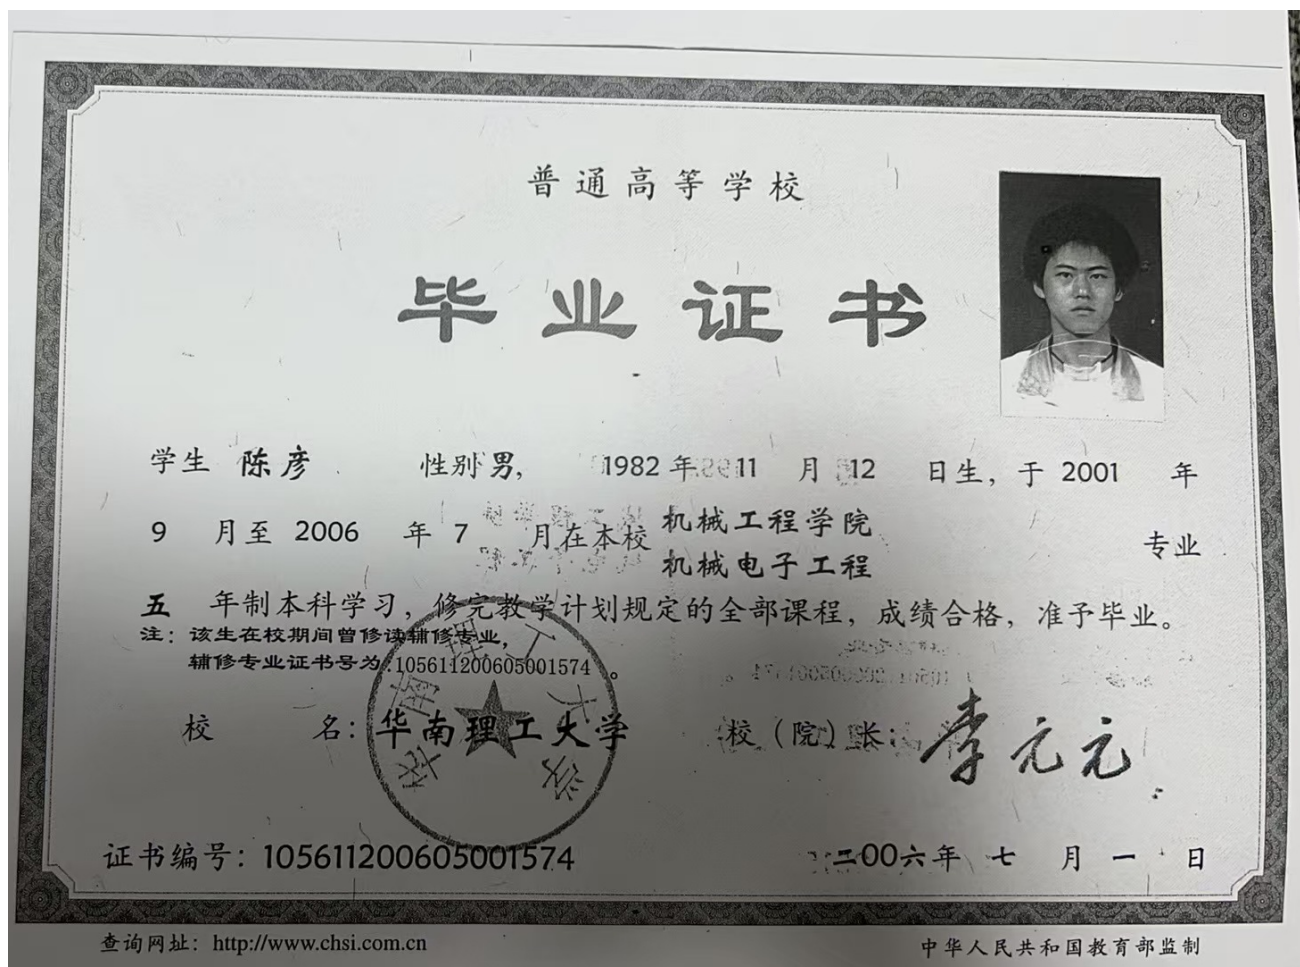 普通高等学校
毕业证书
学生 陈彦 性别 男， 1982 年 11 月 12 日生，于 2001 年
9 月至 2006 年 7 月在本校 机械工程学院
机械电子工程 专业
五 年制本科学习，修完教学计划规定的全部课程，成绩合格，准予毕业。
注：该生在校期间曾修读辅修专业，
辅修专业证书号为:105611200605001574 。
华南理工大学
校 名：华南理工大学 校（院）长：李元元
证书编号：105611200605001574 二00六年 七 月 一 日
查询网址：http://www.chsi.com.cn 中华人民共和国教育部监制